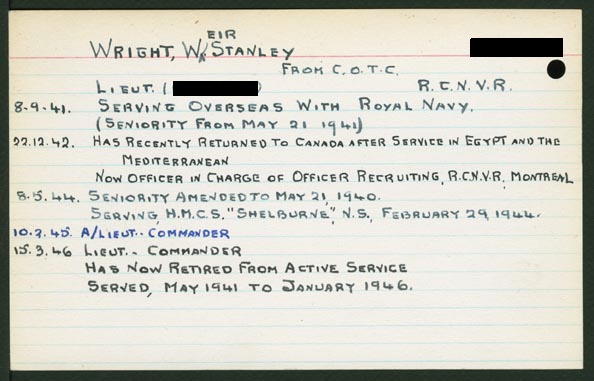 WRIGHT, WEIR STANLEY
FROM C.O.T.C.
LIEUT. ( ) R.C.N.V.R.
8-9-41. SERVING OVERSEAS WITH ROYAL NAVY.
(SENIORITY FROM MAY 21 1941)
22.12.42. HAS RECENTLY RETURNED TO CANADA AFTER SERVICE IN EGYPT AND THE
MEDITERRANEAN
NOW OFFICER IN CHARGE OF OFFICER RECRUITING, R.C.N.V.R, MONTREAL
8.5.44. SENIORITY AMENDED TO MAY 21, 1940.
SERVING, H.M.C.S. "SHELBURNE", N.S, FEBRUARY 29, 1944.
10.2.45. A/LIEUT.. COMMANDER
15.3.46 LIEUT.. COMMANDER
HAS NOW RETIRED FROM ACTIVE SERVICE
SERVED, MAY 1941 TO JANUARY 1946.